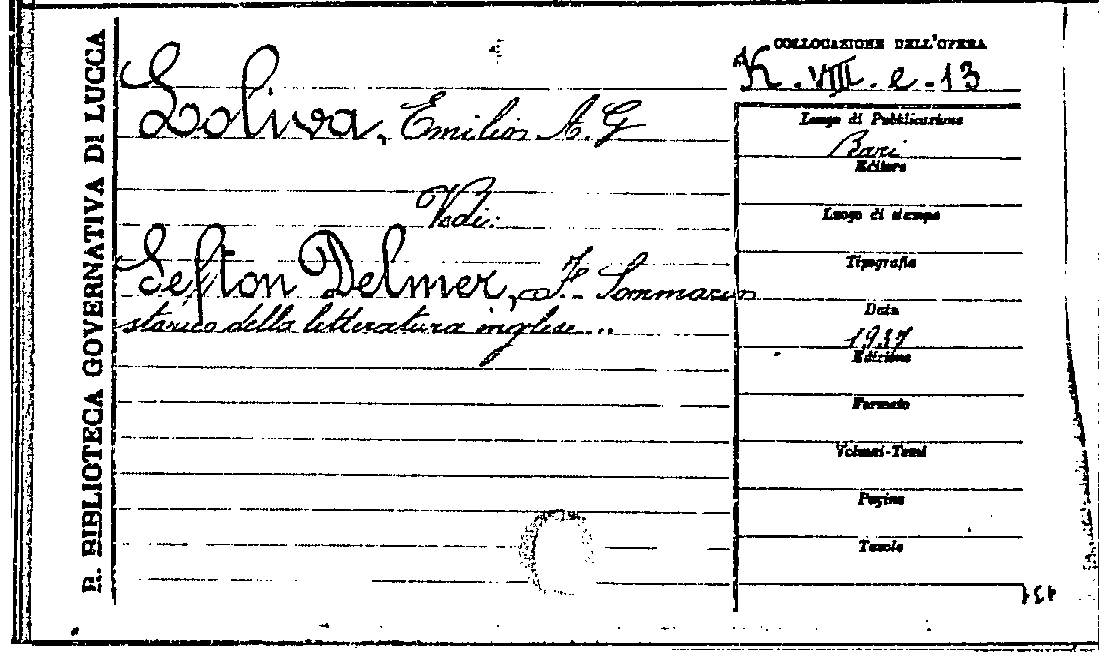 R. BIBLIOTECA GOVERNATIVA DI LUCCA
COLLOCAZIONE DELL'OPERA
K. VIII. e. 13
Loliva, Emilio A. G
Luogo di Pubblicazione
Bari
Editore
Vedi:
Luogo di stampa
Sefton Delmer, F. Sommario
storico della letteratura inglese...
Tipografia
Data
1937
Edizione
Formato
Volumi-Tomi
Pagine
Tavole